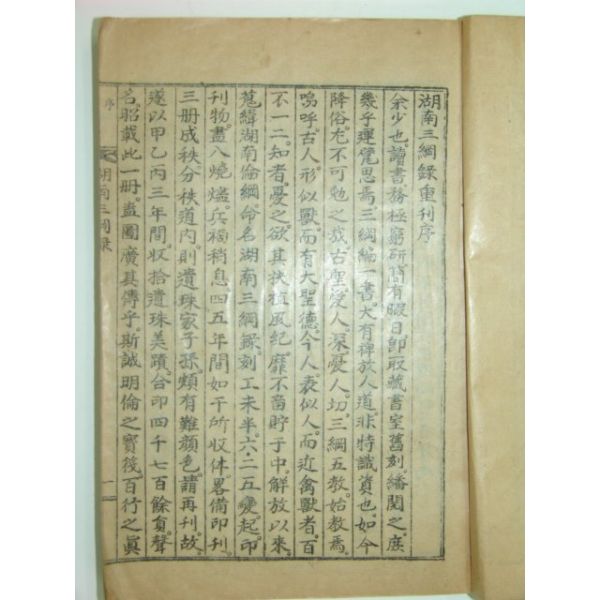 湖南三綱錄重刊序
余少也。讀書務極窮研。間有暇日。卽取藏書室舊刻。繙閱之。庶
幾乎運覽思焉。三綱編一書。大有裨於人道。非特識資也。如今
降俗。尤不可勉之哉。古聖愛人深。憂人切。三綱五敎始敎焉。
嗚呼。古人形似獸。而有大聖德。今人表似人。而近禽獸者。百
不一二。知者憂之。欲其扶植風紀。靡不啻貯于中。解放以來。
蒐緝湖南倫綱。命名湖南三綱錄。刻工未半。六·二五變起。印
刊物。盡入燒燼。兵禍稍息。四五年間。如干所收。体畧備。印刊
三册成秩。分秩道內。則遺珠家子孫。頗有難顏色。請再刊。故
遂以甲乙丙三年間。收拾遺珠美蹟。合印四千七百餘頁。聲
名昭載此一册。盍圖廣其傳乎。斯誠明倫之寶筏。百行之眞
序
湖南三綱錄
一